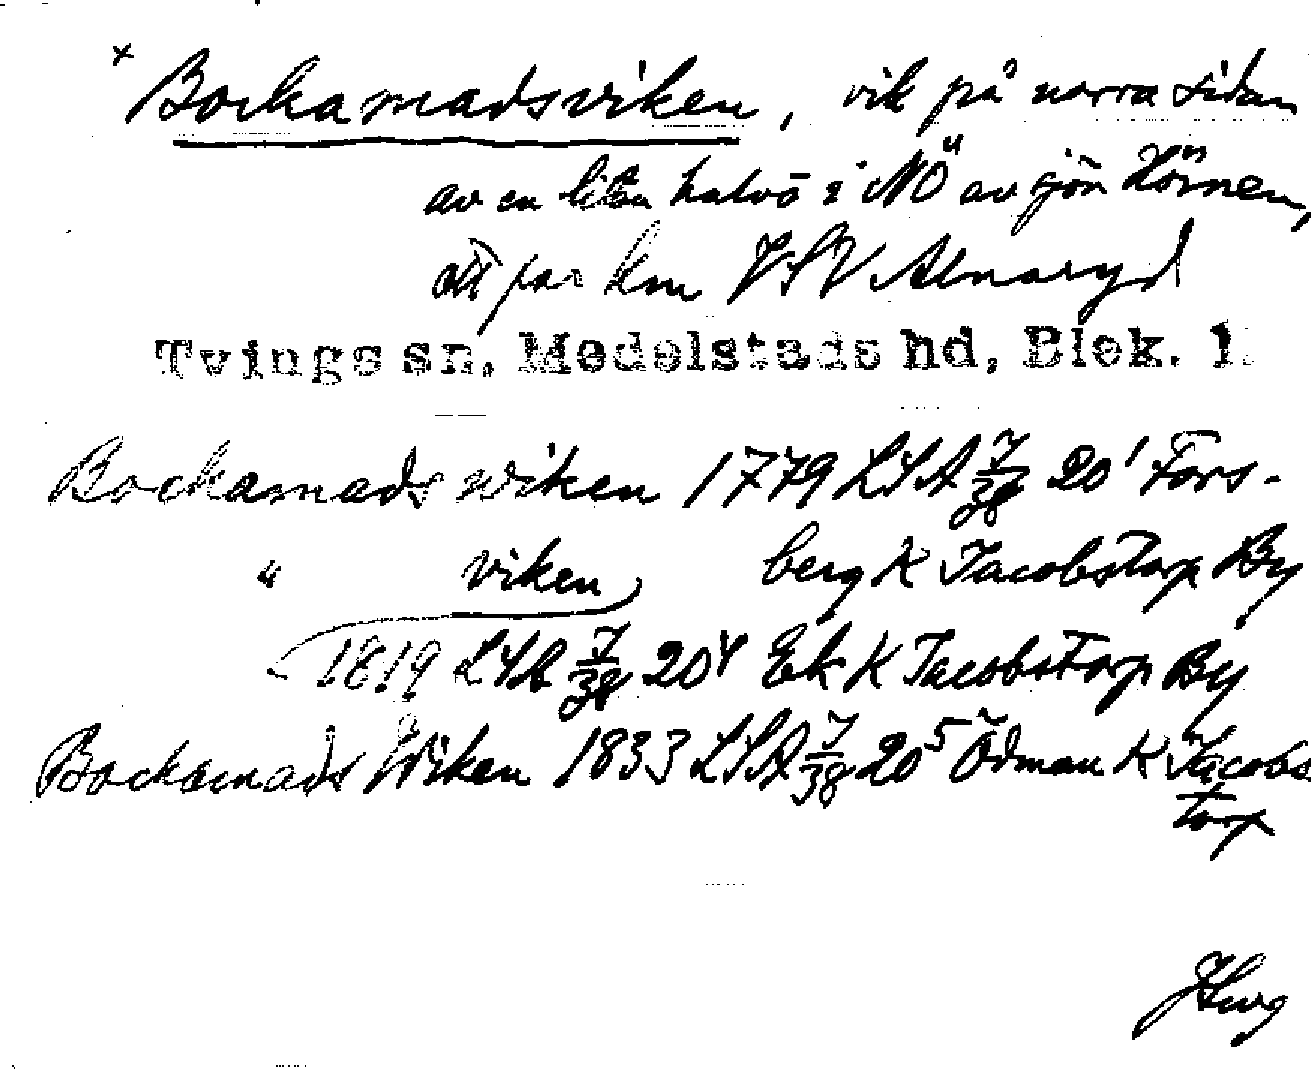 × Bockamadsviken, vik på norra sidan
av en liten halvö i NÖ av sjön Hörnen,
ett par km VSV Alnaryd
Tvings sn, Medelstads hd, Blek. l.
Bockamads wiken 1779 LSA 7/38 20¹ Fors-
" viken berg K Jacobstorp By
1819 LSA 7/38 20⁴ Ek K Jacobstorp By
Bockamads Wiken 1833 LSA 7/38 20⁵ Ödman K Jacobs
torp